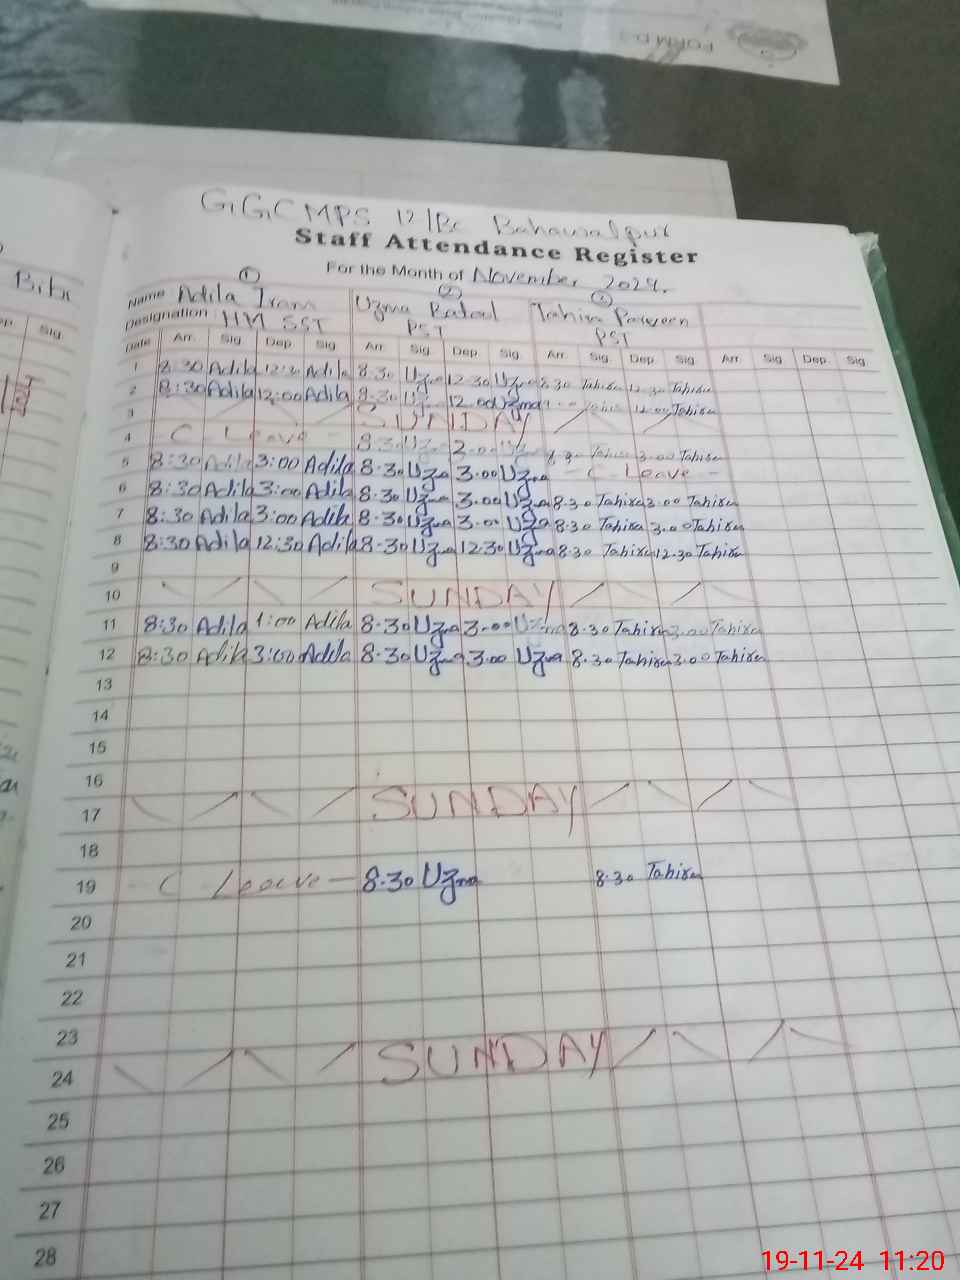 FORM D-
GGCMPS 12/BC Bahawalpur
Staff Attendance Register
For the Month of November 2024.
Bibi
Sig.
① ② ③
Name Adila Iram Uzma Batool Tahira Parveen
Designation HM SST PST PST
Date Arr. Sig Dep. Sig Arr. Sig. Dep. Sig. Arr. Sig. Dep. Sig Arr. Sig Dep. Sig
1 8:30 Adila 12:30 Adila 8.30 Uzma 12.30 Uzma 8.30 Tahira 12.30 Tahira
2 8:30 Adila 12:00 Adila 8.30 Uzma 12.00 Uzma Tahira 12.00 Tahira
3 SUNDAY
4 C Leave - 8.30 Uzma 3.00 Uzma 8.30 Tahira 3.00 Tahira
5 8:30 Adila 3:00 Adila 8.30 Uzma 3.00 Uzma - C Leave -
6 8:30 Adila 3:00 Adila 8.30 Uzma 3.00 Uzma 8.30 Tahira 3.00 Tahira
7 8:30 Adila 3:00 Adila 8.30 Uzma 3.00 Uzma 8.30 Tahira 3.00 Tahira
8 8:30 Adila 12:30 Adila 8.30 Uzma 12.30 Uzma 8.30 Tahira 12.30 Tahira
9
10 SUNDAY
11 8:30 Adila 1:00 Adila 8.30 Uzma 3.00 Uzma 8.30 Tahira 3.00 Tahira
12 8:30 Adila 3:00 Adila 8.30 Uzma 3.00 Uzma 8.30 Tahira 3.00 Tahira
13
14
15
16
17 SUNDAY
18
19 - C Leave - 8.30 Uzma 8.30 Tahira
20
21
22
23
24 SUNDAY
25
26
27
28
19-11-24 11:20